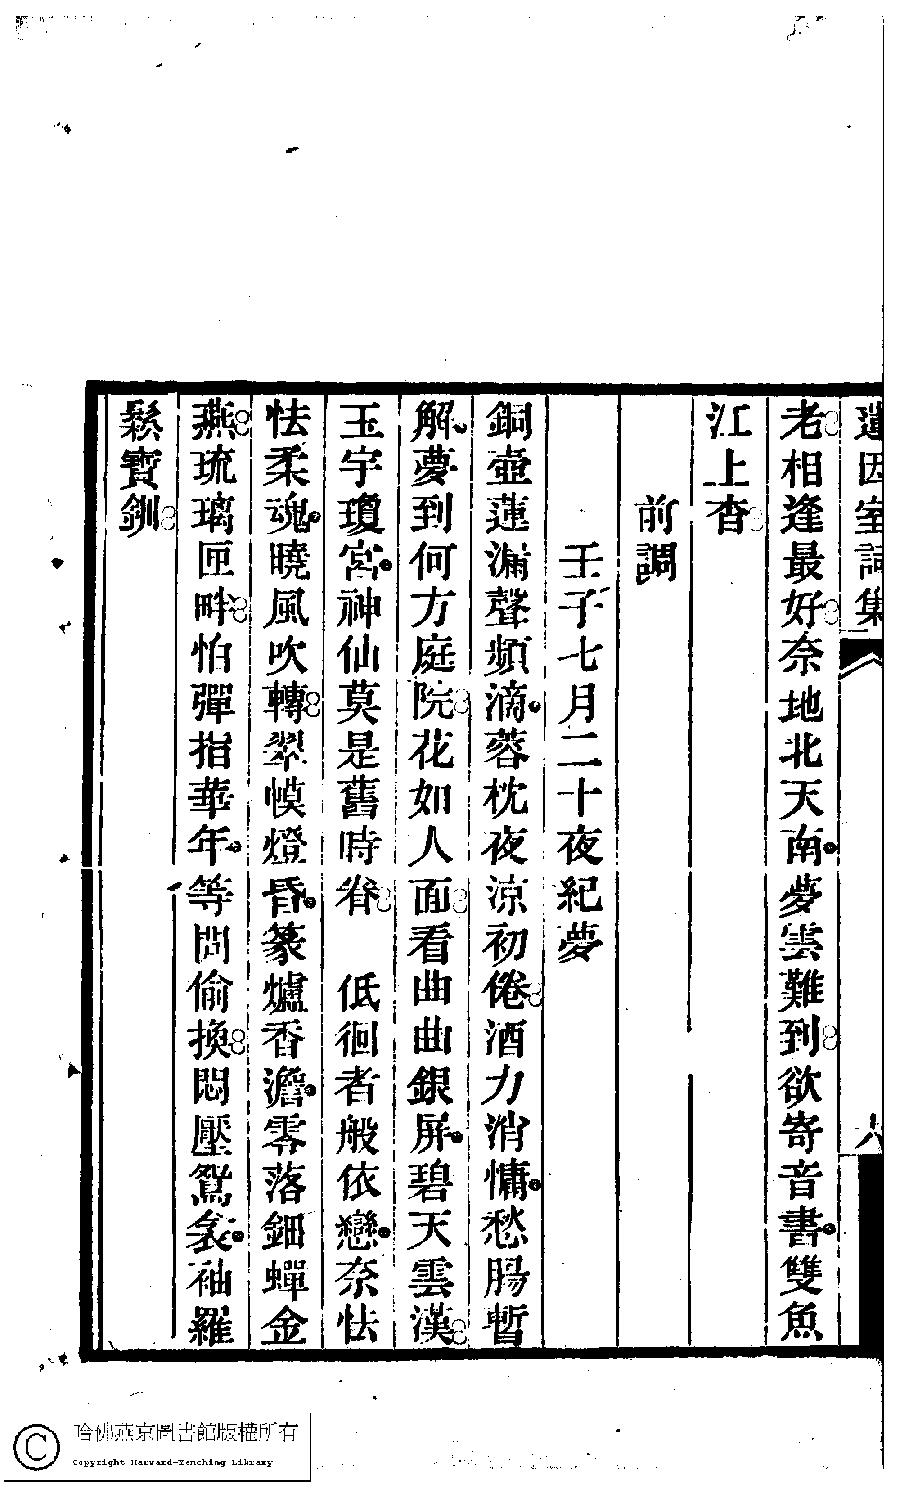 遺因室詞集
六
老相逢最好奈地北天南夢雲難到欲寄音書雙魚
江上杳
前調
壬子七月二十夜紀夢
銅壺蓮漏聲頻滴蓉枕夜凉初倦酒力消慵愁腸暫
解夢到何方庭院花如人面看曲曲銀屏碧天雲漢
玉宇瓊宮神仙莫是舊時眷　低徊者般依戀奈怯
怯柔魂曉風吹轉翠幙燈昏篆爐香澹零落鈿蟬金
燕琉璃匣畔怕彈指華年等閒偷換悶壓鴛衾袖羅
鬆寶釧
哈佛燕京圖書館版權所有
Copyright Harvard-Yenching Library